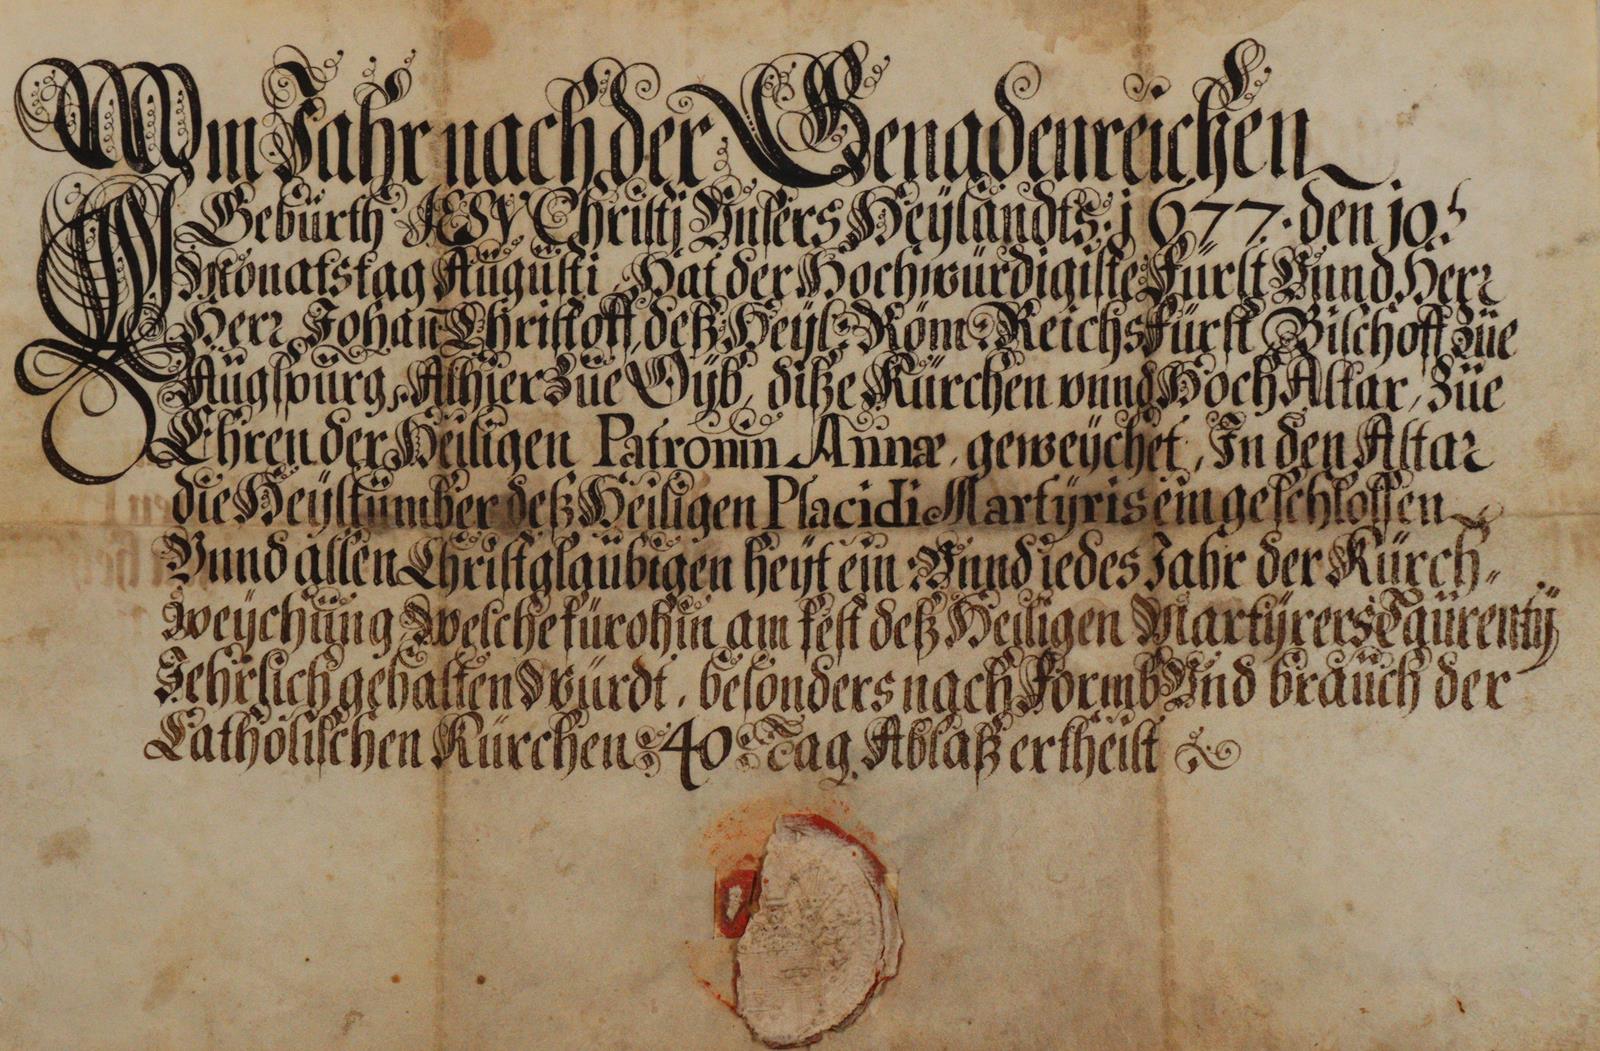 Im Jahr nach der Genadenreichen
Gebürth JESV Christi Vnsers Heylandts 1677. den 10.
Monatstag Augusti, Hat der Hochwürdigiste Fürst Vnnd Herr
Herr Johan̄ Christoff, deß Heyl: Röm: Reichs Fürst Bischoff züe
Augspurg, Alhier züe Oÿb, diße Kürchen vnnd Hoch Altar, züe
Ehren der Heiligen Patronin Annæ, geweÿchet, In den Altar
die Heÿltümber deß Heiligen Placidi Martÿris ein geschlossen
Vnnd allen Christglaubigen heÿt ein Vnnd iedes Jahr der Kürch
weÿchung Welche fürohin am fest deß Heiligen Martÿrers Laurentÿ
Jehrlich gehalten Würdt, besonders nach Formb Vnd brauch der
Catholischen Kürchen 40 Tag Ablaß ertheilt